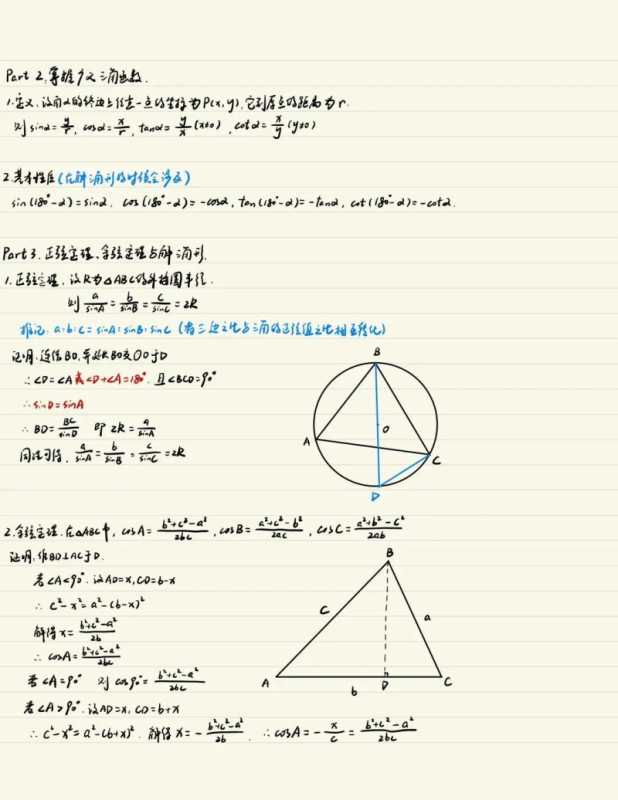 Part 2. 掌握广义三角函数.
1.定义.设角α的终边上任意一点的坐标为P(x,y),它到原点的距离为r.
则 sinα=y/r, cosα=x/r, tanα=y/x (x≠0), cotα=x/y (y≠0)
2.基本性质(在解三角形的时候会涉及)
sin(180°-α)=sinα, cos(180°-α)=-cosα, tan(180°-α)=-tanα, cot(180°-α)=-cotα.
Part 3. 正弦定理、余弦定理与解三角形.
1.正弦定理.设R为△ABC的外接圆半径.
则 a/sinA=b/sinB=c/sinC=2R
推论: a:b:c=sinA:sinB:sinC (即三边之比与三角的正弦值之比相互转化)
证明.连结BO,并延长BO交⊙O于D
∴∠D=∠A或∠D+∠A=180°.且∠BCD=90°
∴sinD=sinA
∴BD=BC/sinD 即 2R=a/sinA
同法可得, a/sinA=b/sinB=c/sinC=2R
B
A
O
C
D
2.余弦定理.在△ABC中, cosA=b²+c²-a²/2bc, cosB=a²+c²-b²/2ac, cosC=a²+b²-c²/2ab
证明.作BD⊥AC于D.
若∠A<90°.设AD=x,CD=b-x
∴c²-x²=a²-(b-x)²
解得x=b²+c²-a²/2b
∴cosA=b²+c²-a²/2bc
若∠A=90° 则 cos90°=b²+c²-a²/2bc
若∠A>90°.设AD=x, CD=b+x
∴c²-x²=a²-(b+x)². 解得 x=-b²+c²-a²/2b. ∴cosA=-x/c=b²+c²-a²/2bc
B
c
a
A
b
D
C